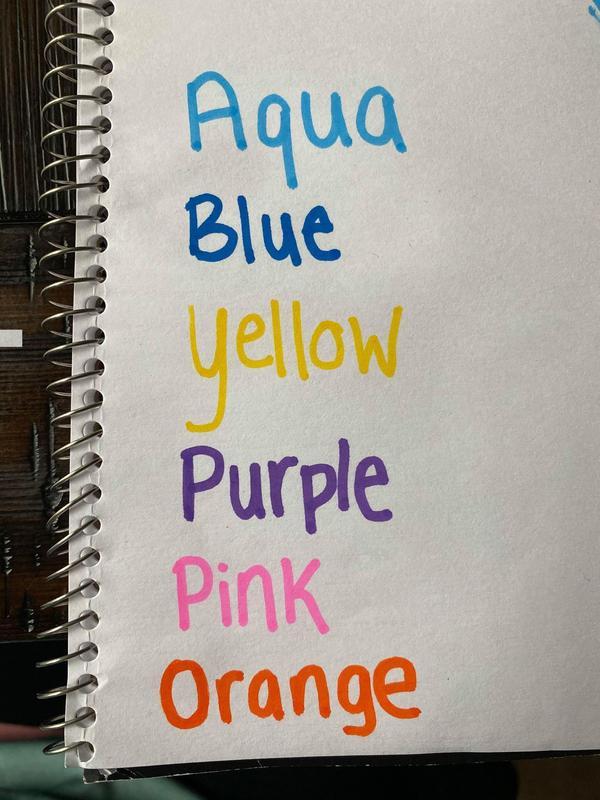 Aqua
Blue
yellow
Purple
Pink
Orange